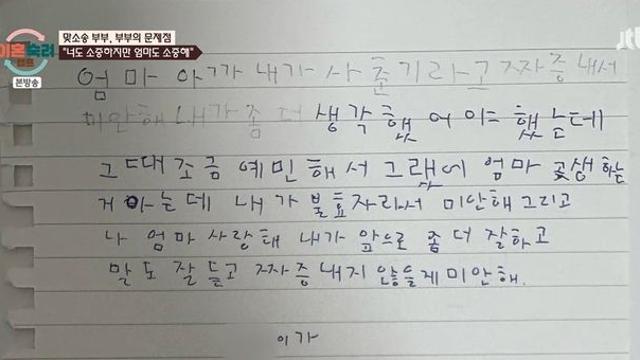 이혼숙려
캠프
본방송
맞소송 부부, 부부의 문제점
"너도 소중하지만 엄마도 소중해"
JT
엄마 아까 내가 사춘기라고 짜증내서
미안해 내가 좀 더 생각했어야 했는데
그때 조금 예민해서 그랬어 엄마 곶생하는
거 아는데 내가 불효자라서 미안해 그리고
나 엄마 사랑해 내가 앞으로 좀 더 잘하고
말도 잘 듣고 짜증내지 않을게 미안해.
이가